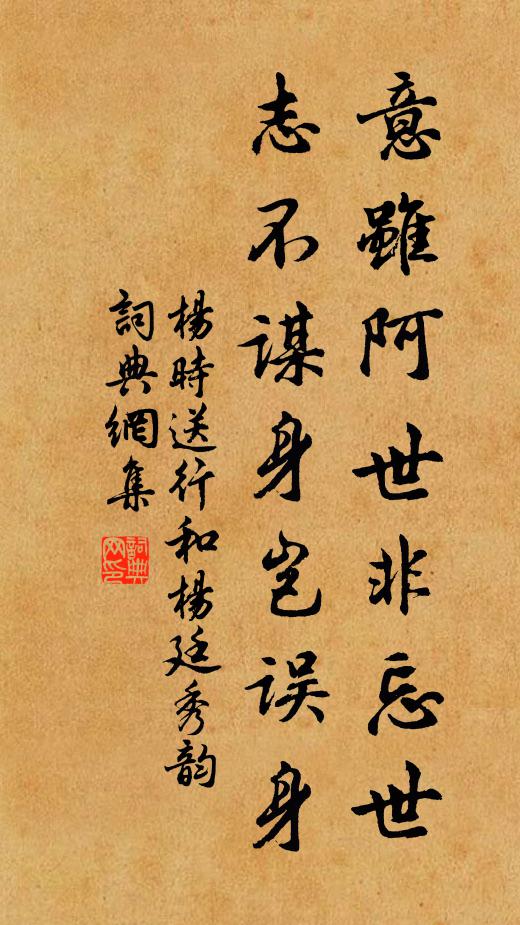 意雖阿世非忘世
志不谋身岂误身
楊時送行和楊廷秀韵
詞典網集
詞典網印